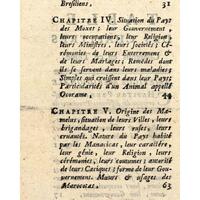 Bresiliens. 31
CHAPITRE IV. Situation du Pays
des Moxes; leur Gouvernement,
leurs occupations, leur Religion,
leurs Ministres, leurs societés; Cé-
rémonies de leurs Enterremens &
de leurs Mariages; Remédes dont
ils se servent dans leurs maladies;
Simples qui croissent dans leur Pays;
Particularités d'un Animal appellé
Ocorame. 44
CHAPITRE V. Origine des Ma-
melus, situation de leurs Villes, leurs
brigandages, leurs ruses, leurs
cruautés. Nature du Pays habité
par les Manacicas, leur caractère,
leur génie, leur Religion, leurs
cérémonies, leurs coutumes; autorité
de leurs Caciques & forme de leur Gou-
vernement. Mœurs & usages des
Morocotas. 63